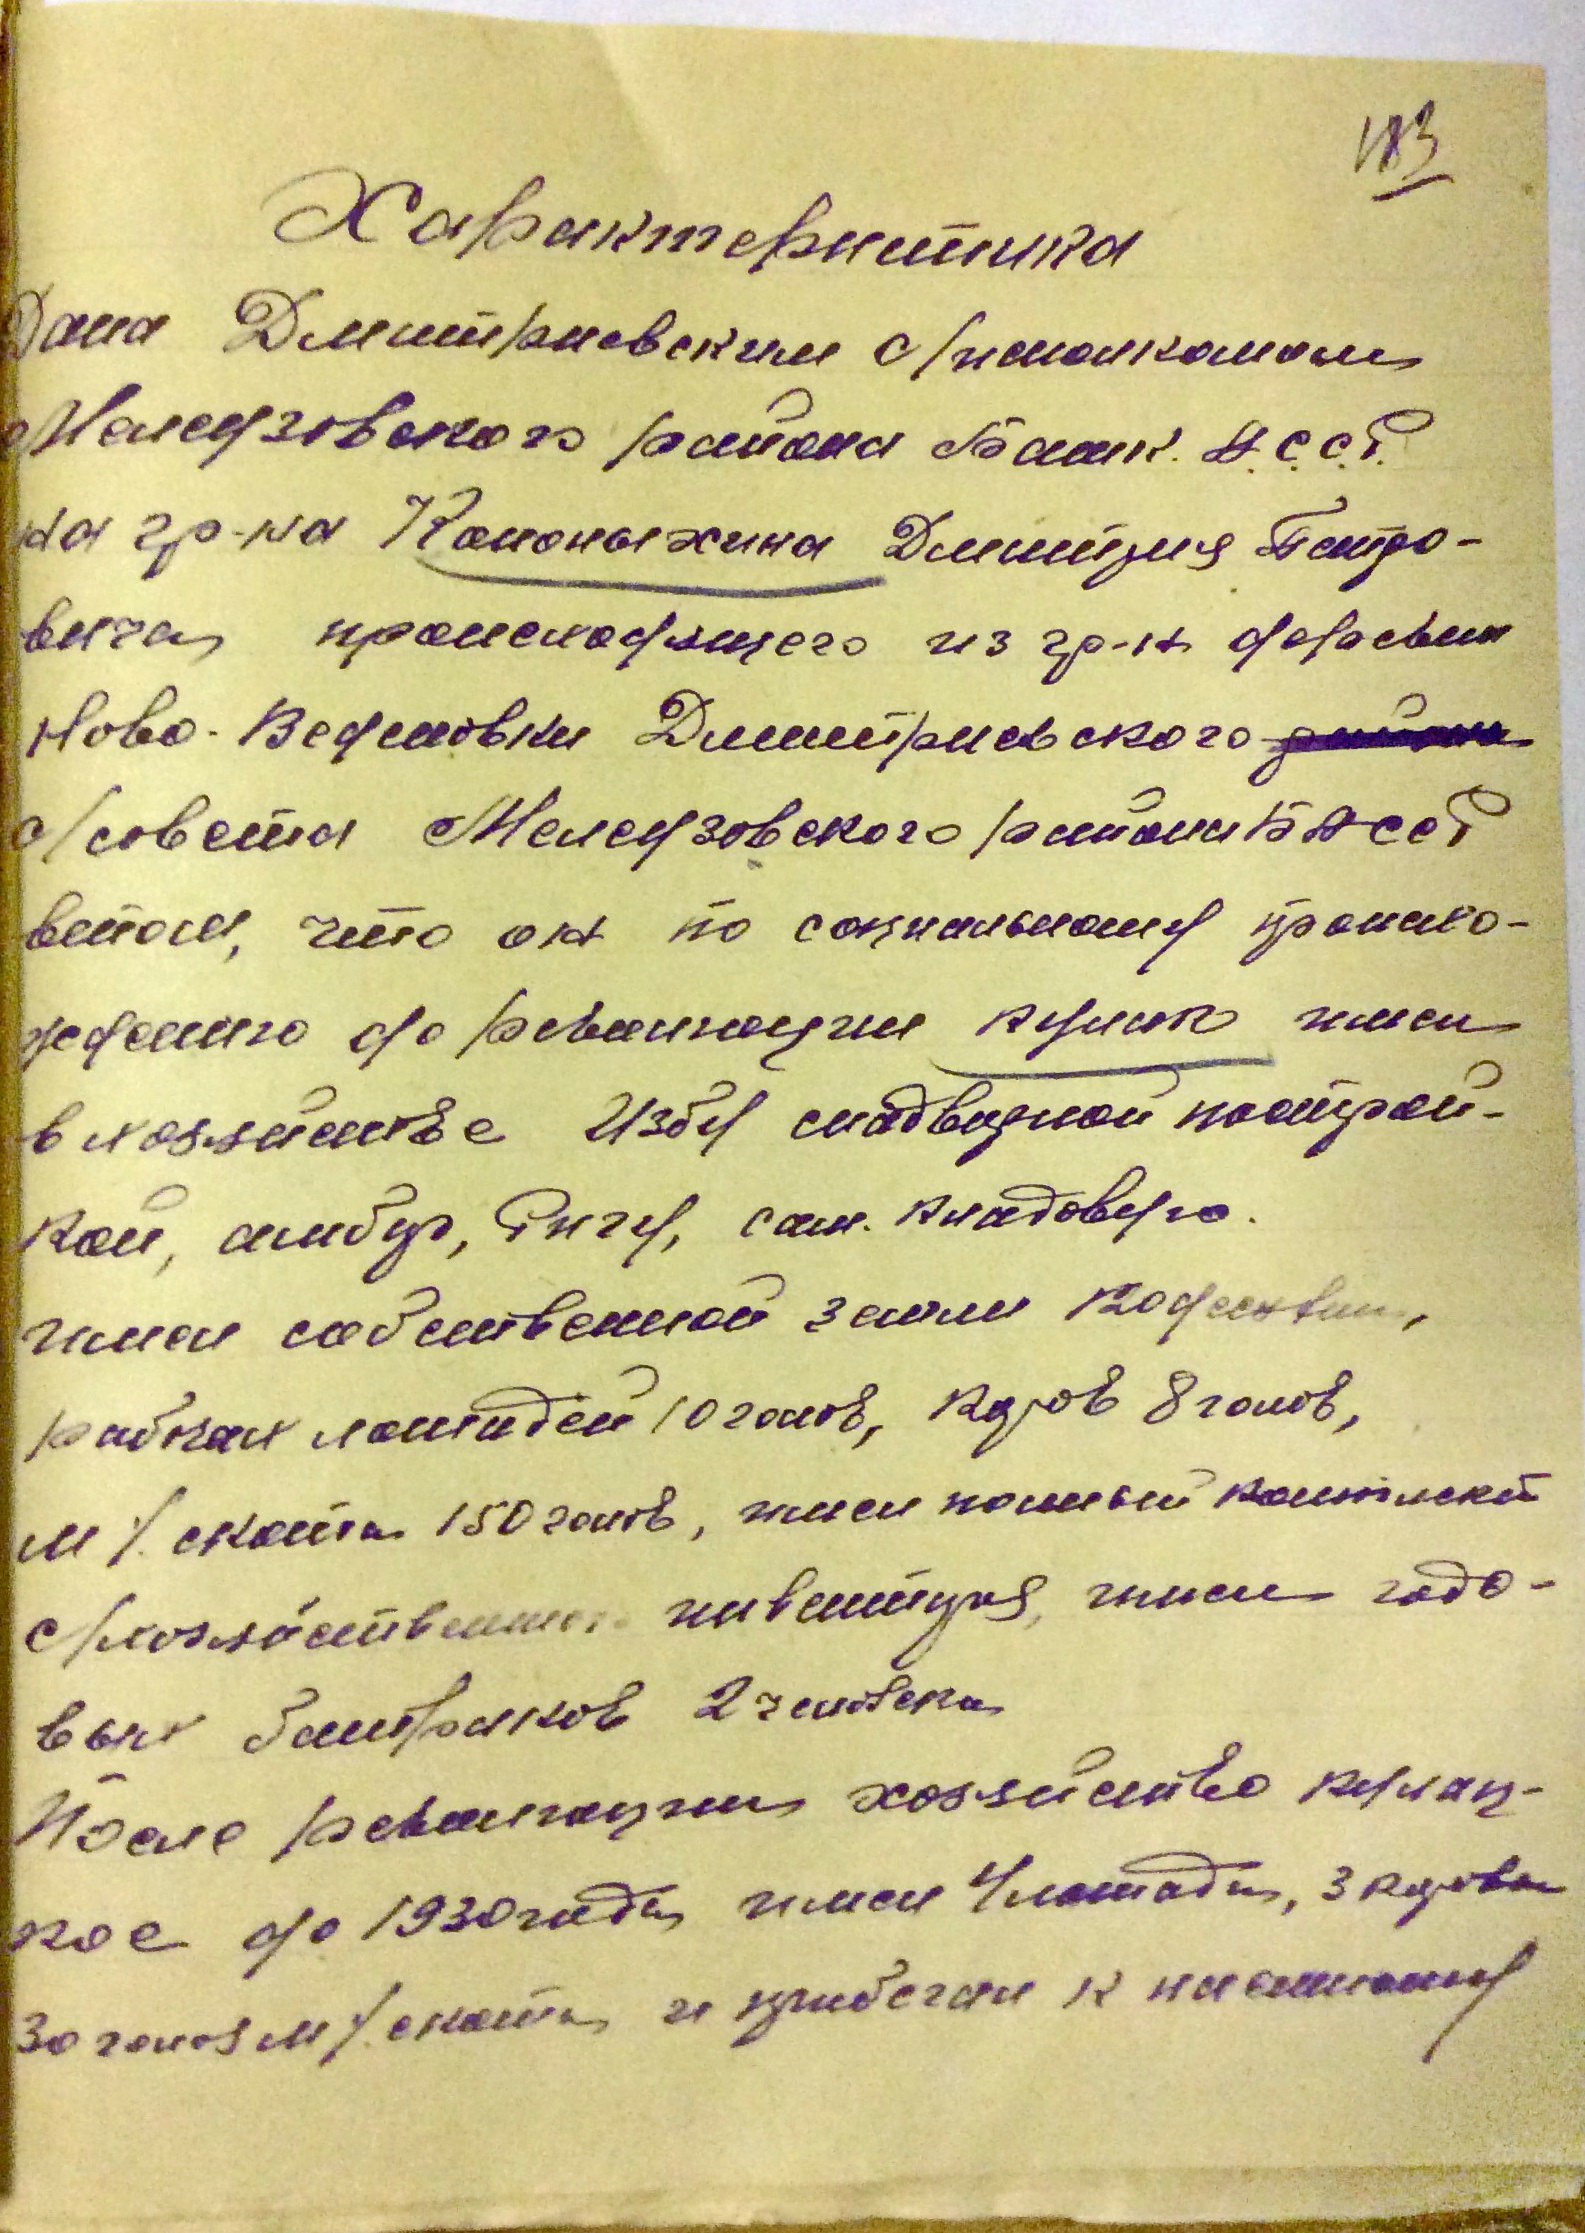 183
Характеристика
Дана Дмитриевским с/исполкомом
Мелеузовского района Башк. А.С.С.Р.
на гр-на Кононыхина Дмитрия Петро-
вича, происходящего из гр-н деревни
Ново-Веденовки Дмитриевского района
с/совета Мелеузовского района БАССР
в том, что он по социальному происхо-
ждению до революции кулак имел
в хозяйстве Избу с надворной построй-
кой, амбар, Ригу, сам. кладовую.
имел собственной земли
рабочих лошадей 10 голов, коров 8 голов,
м/. скота 150 голов, имел полный комплект
с/хозяйственного инвентаря, имел годо-
вых батраков 2 человека
После революции хозяйство кулац-
кое до 1930 года, имел 4 лошади, 3 коровы
30 голов м/. скота, и прибегал к наемному